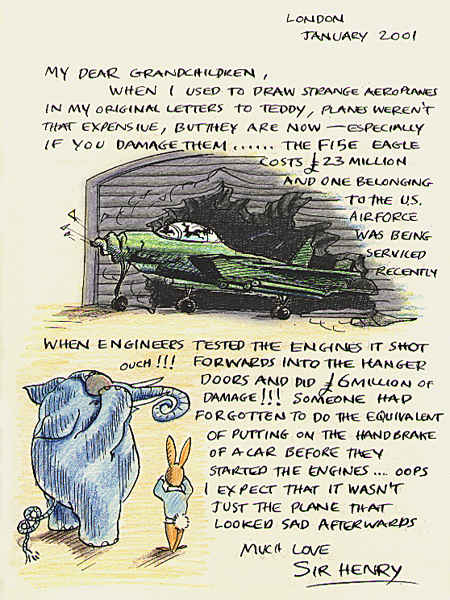 LONDON
JANUARY 2001
MY DEAR GRANDCHILDREN,
WHEN I USED TO DRAW STRANGE AEROPLANES
IN MY ORIGINAL LETTERS TO TEDDY, PLANES WEREN'T
THAT EXPENSIVE, BUT THEY ARE NOW — ESPECIALLY
IF YOU DAMAGE THEM ...... THE F15E EAGLE
COSTS £23 MILLION
AND ONE BELONGING
TO THE U.S.
AIRFORCE
WAS BEING
SERVICED
RECENTLY
WHEN ENGINEERS TESTED THE ENGINES IT SHOT
OUCH!!!
FORWARDS INTO THE HANGER
DOORS AND DID £6 MILLION OF
DAMAGE!!! SOMEONE HAD
FORGOTTEN TO DO THE EQUIVALENT
OF PUTTING ON THE HANDBRAKE
OF A CAR BEFORE THEY
STARTED THE ENGINES ... OOPS
I EXPECT THAT IT WASN'T
JUST THE PLANE THAT
LOOKED SAD AFTERWARDS
MUCH LOVE
SIR HENRY